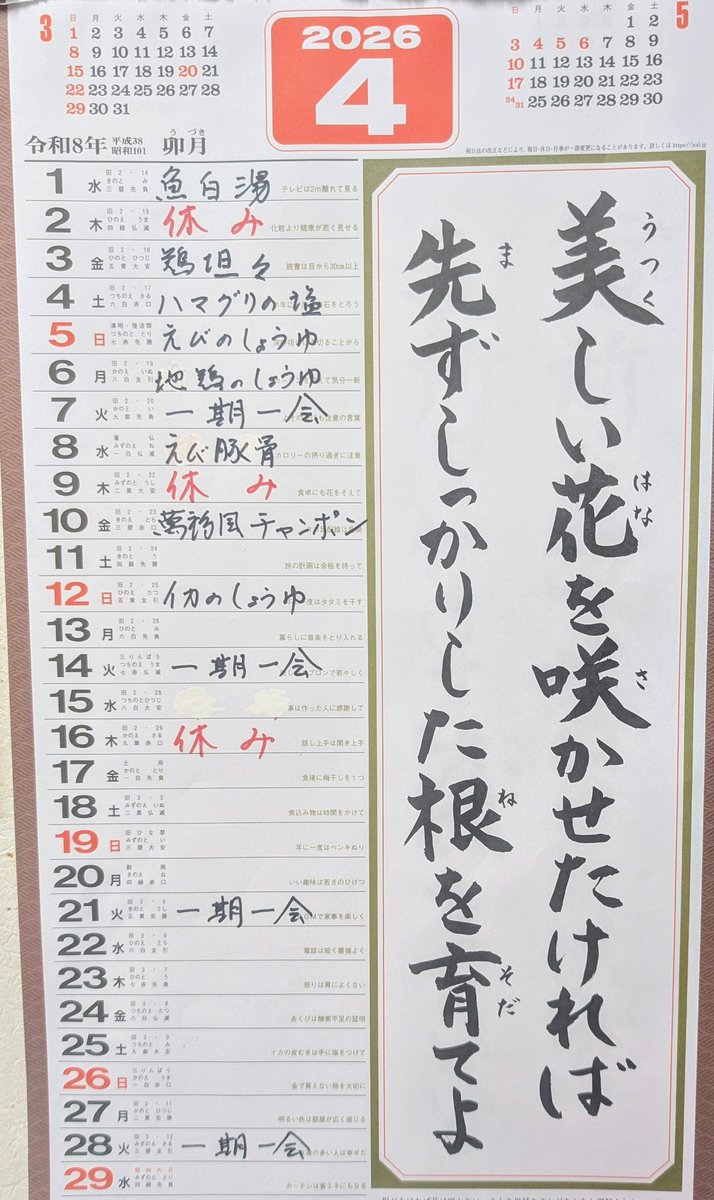 3
日 月 火 水 木 金 土
1 2 3 4 5 6 7
8 9 10 11 12 13 14
15 16 17 18 19 20 21
22 23 24 25 26 27 28
29 30 31
2026
4
5
日 月 火 水 木 金 土
1 2
3 4 5 6 7 8 9
10 11 12 13 14 15 16
17 18 19 20 21 22 23
24/31 25 26 27 28 29 30
令和8年 平成38 昭和101 卯月 うづき
1 水 魚白湯 テレビは2m離れて見る
2 木 休み 化粧より健康が若く見せる
3 金 鶏坦々 読書は目から30cm以上
4 土 ハマグリの塩
5 日 えびのしょうゆ
6 月 地鶏のしょうゆ
7 火 一期一会
8 水 えび豚骨 カロリーの摂り過ぎに注意
9 木 休み 食卓にも花をそえて
10 金 チャンポン
11 土 旅の計画は余裕を持って
12 日 イカのしょうゆ 度はタタミを干す
13 月 暮らしに音楽をとり入れる
14 火 一期一会 プロンで若々しく
15 水 事は作った人に感謝して
16 木 休み 話し上手は聞き上手
17 金 食後に梅干しを1つ
18 土 煮込み物は時間をかけて
19 日 年に一度はペンキぬり
20 月 いい趣味は若さのひけつ
21 火 一期一会 GMで家事を楽しく
22 水 電話は短く要領よく
23 木 怒りは胃によくない
24 金 あくびは酸素不足の証明
25 土 イカの皮むきは手に塩をつけて
26 日 金で買えない物を大切に
27 月 明るい色は部屋が広く感じる
28 火 一期一会 の多い人は幸せだ
29 水 カーテンは省エネにもなる
美しい花を咲かせたければ
うつく はな さ
先ずしっかりした根を育てよ
ま ね そだ